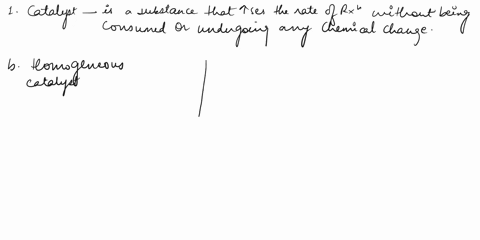 1. Catalyst — is a substance that ↑ses the rate of Rxⁿ without being
consumed or undergoing any chemical change.
b. Homogeneous
catalyst